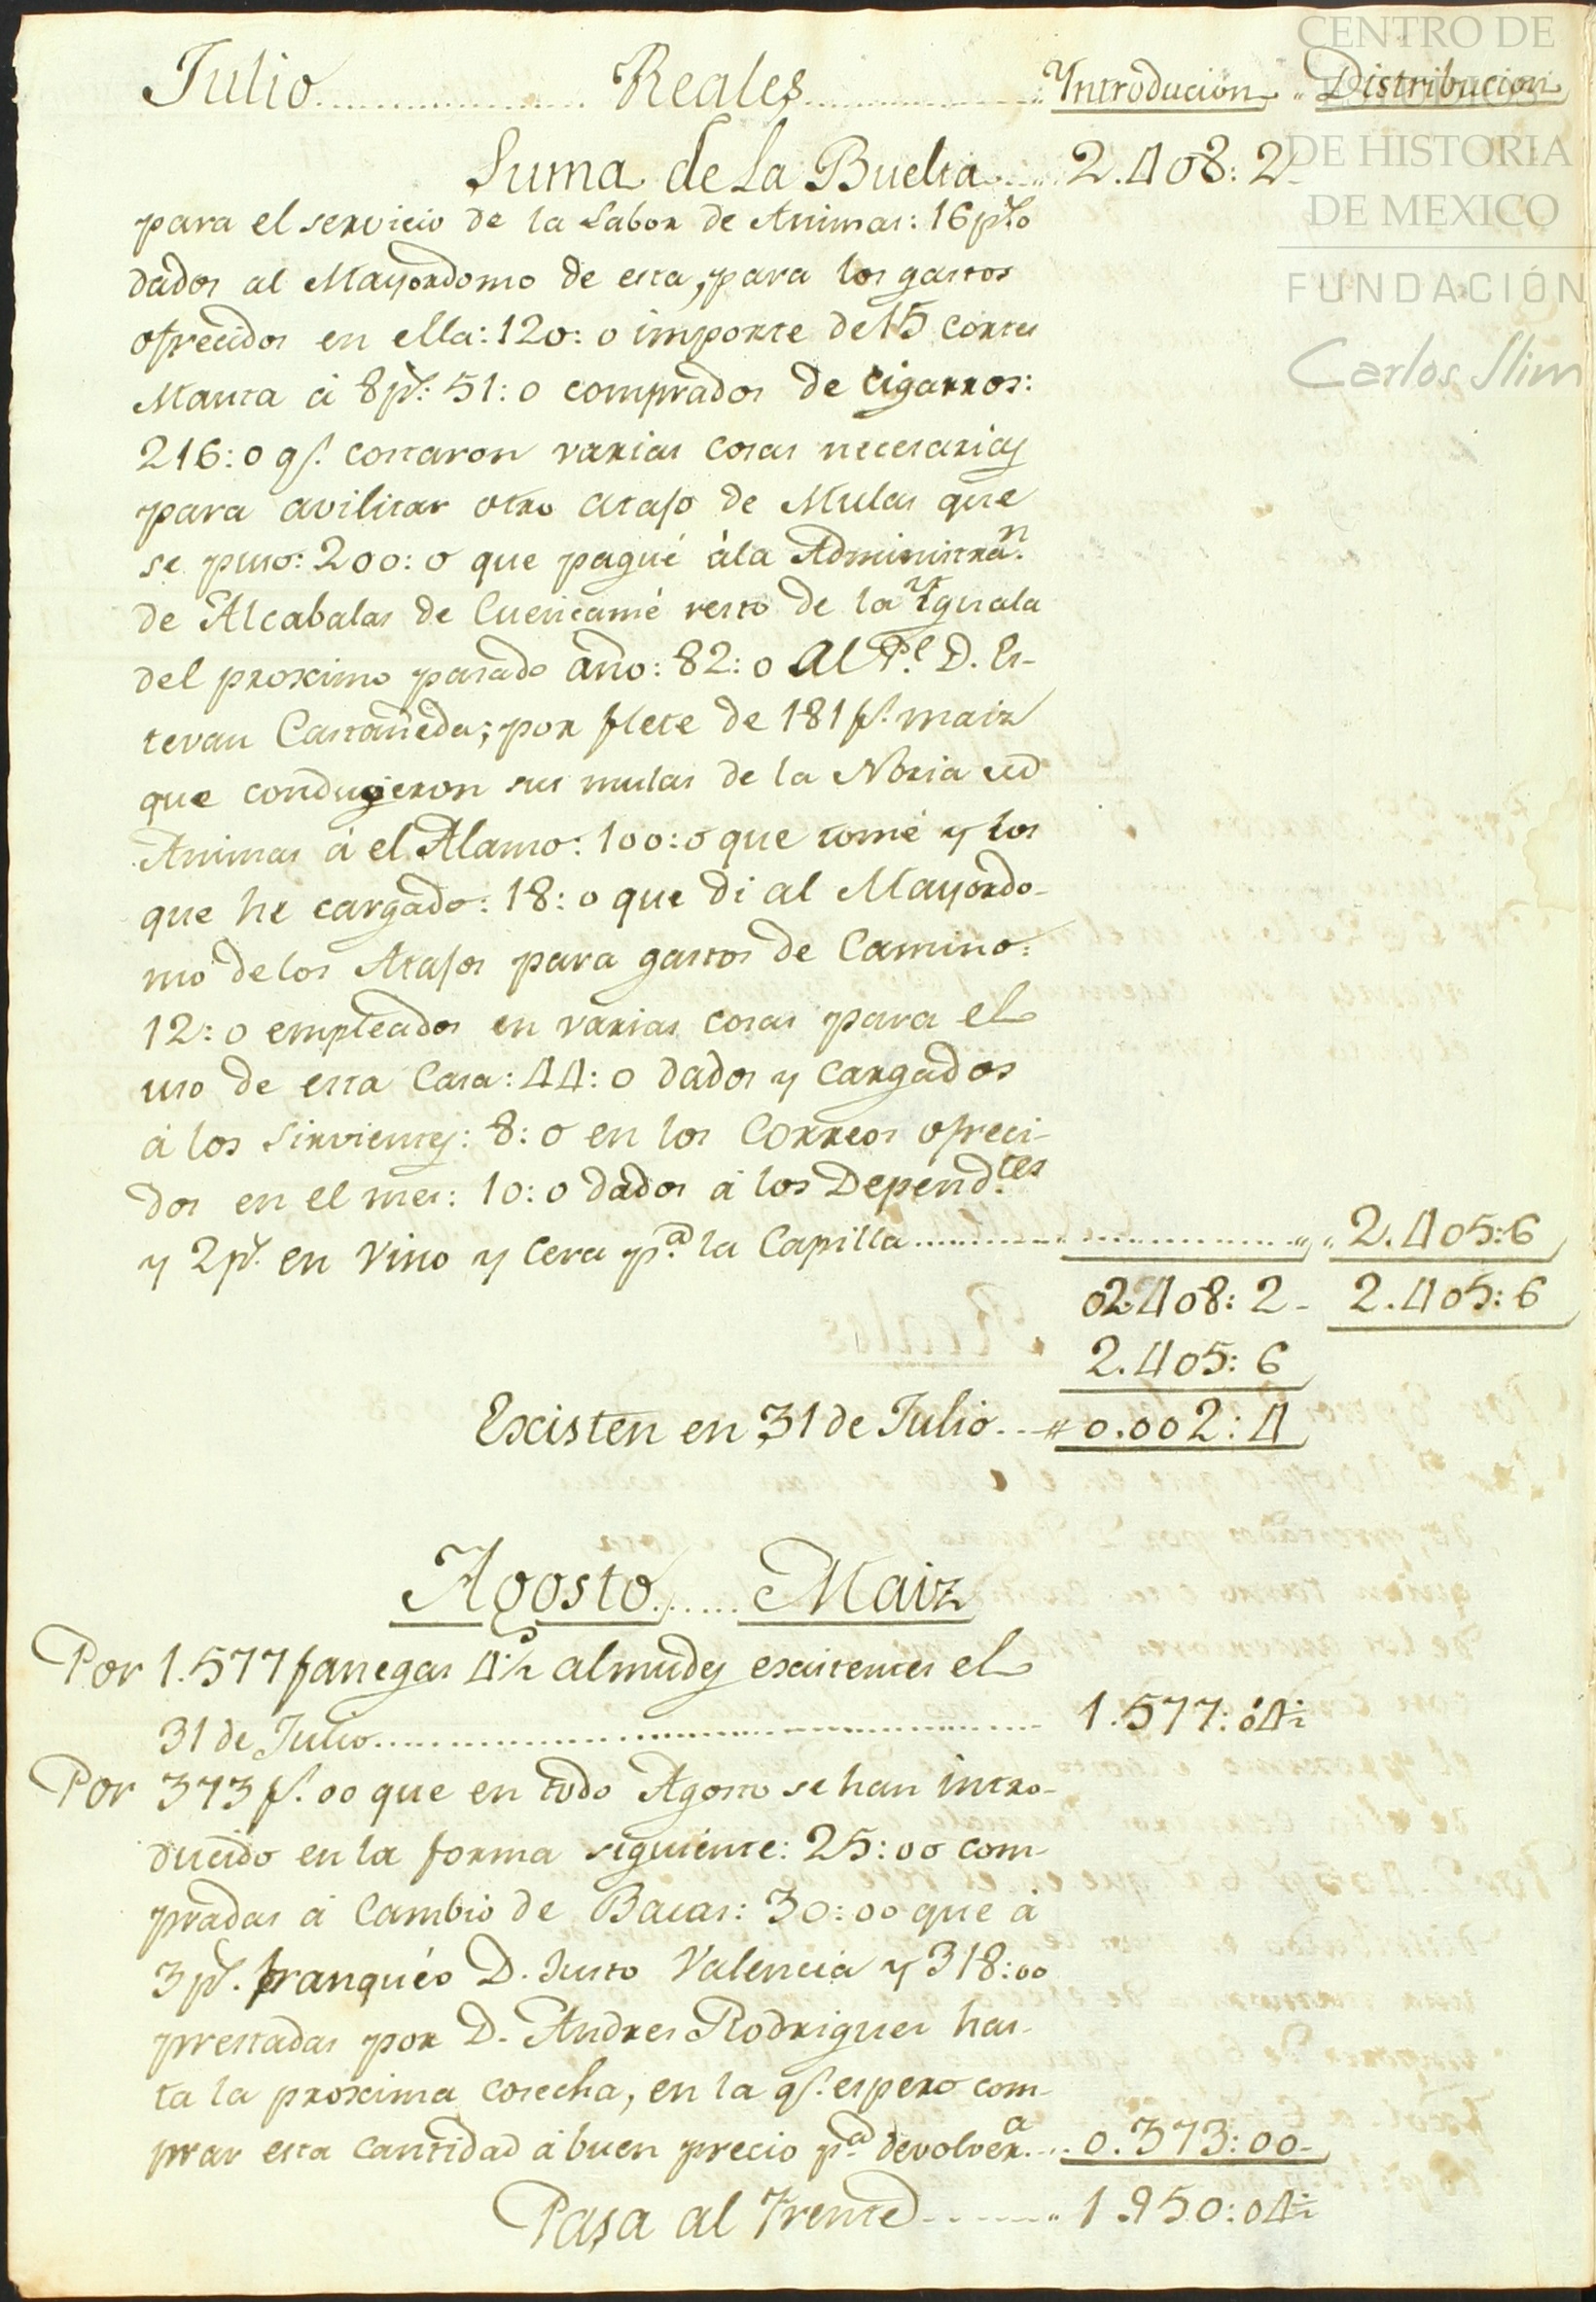 CENTRO DE
ESTUDIOS
DE HISTORIA
DE MEXICO
FUNDACIÓN
Carlos Slim
Julio Reales Yntroducion Distribucion
Suma de la Buelta 2.408:2
para el servicio de la Labor de Animas: 16 ps.
dados al Mayordomo de esta, para los gastos
ofrecidos en ella: 120:0 importe de 15 cortes
Manta á 8 ps.: 51:0 comprados de cigarros:
216:0 qe. costaron varias cosas necesarias
para avilitar otro atajo de Mulas que
se puso: 200:0 que pagué á la Administran.
de Alcabalas de Cuencamé resto de la Yguala
del proximo pasado año: 82:0 Al Pe. D. Es-
tevan Castañeda; por flete de 181 fs. maiz
que condugeron sus mulas de la Noria de
Animas á el Alamo: 100:0 que tomé y los
que he cargado: 18:0 que di al Mayordo-
mo de los Atajos para gastos de Camino:
12:0 empleados en varias cosas para el
uso de esta Casa: 44:0 dados y cargados
á los Sirvientes: 8:0 en los Correos ofreci-
dos en el mes: 10:0 dados á los Dependtes.
y 2 ps. en Vino y Cera pa. la Capilla 2.405:6
02408:2 2.405:6
2.405:6
Existen en 31 de Julio 0.002:4
Agosto Maiz
Por 1.577 fanegas 4½ almudes existentes el
31 de Julio 1.577:04½
Por 373 fs. 00 que en todo Agosto se han intro-
ducido en la forma siguiente: 25:00 com-
pradas á Cambio de Bacas: 30:00 que á
3 ps. franqueó D. Justo Valencia y 318:00
prestadas por D. Andres Rodriguez has-
ta la proxima cosecha, en la qe. espero com-
prar esta cantidad á buen precio pa. devolvera. 0.373:00
Pasa al Frente 1.950:04½